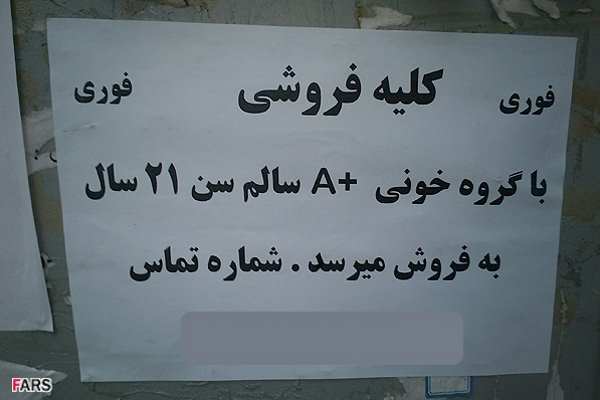 فوری کلیه فروشی فوری
با گروه خونی +A سالم سن ۲۱ سال
به فروش میرسد . شماره تماس
FARS